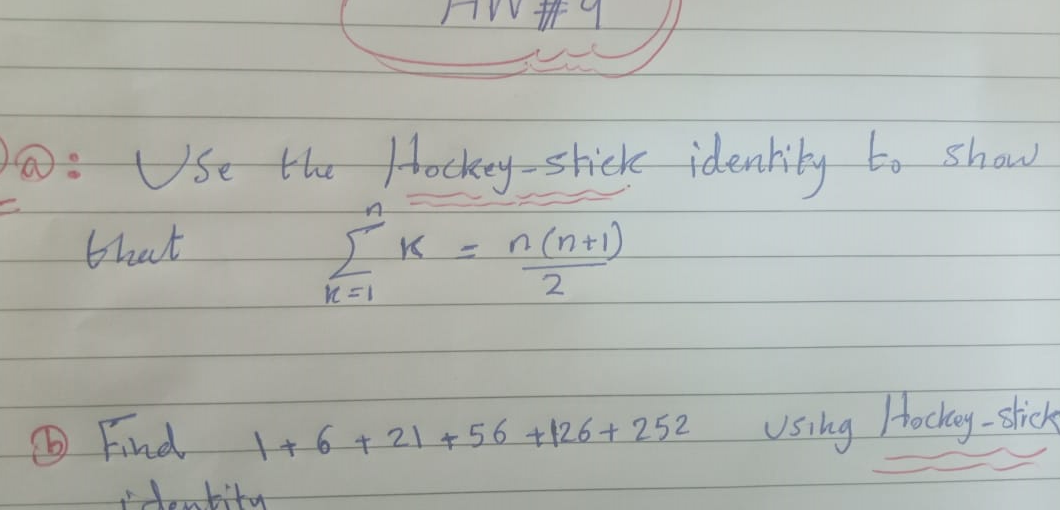 HW #9
a: Use the Hockey-stick identity to show
that n∑k=1 K = n(n+1)/2
b Find 1 + 6 + 21 + 56 + 126 + 252 Using Hockey-stick
identity